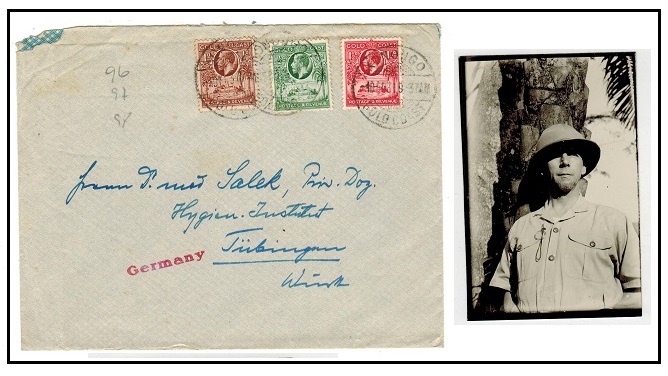 96
97
98
GOLD COAST
POSTAGE & REVENUE
GOLD COAST
POSTAGE & REVENUE
GOLD COAST
POSTAGE & REVENUE
GOLD COAST
Herrn Dr. med Salek, Priv. Doz.
Hygien. Institut
Tübingen
Germany
Württ